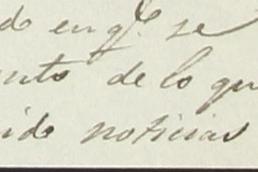 do en qe. se
nto de lo qu
ido noticias